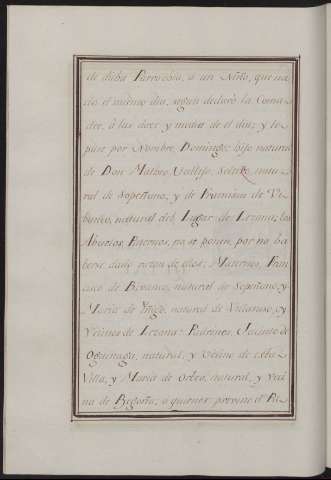 de dicha Parrochia, a un Niño, que na
ció el mismo dia, segun declaró la Coma
dre, á las doce y media de el dia; y le
puse por Nombre, Domingo; hijo natural
de Don Matheo Vallejo, Soltero, natu
ral de Sopeñano; y de Francisca de Vi
natural del Lugar de Lezana; los
Abuelos Paternos, no se ponen, por no ha
berse dado razon de ellos; Maternos, Fran
cisco de natural de Sopeñano, y
Maria de natural de Villasuso, y
Vecinos de Lezana: Padrinos, Jacinto de
Oguinaga, natural, y Vecino de esta
Villa, y Maria de Orbea, natural, y Veci
na de Begoña; a quienes previne el Pa